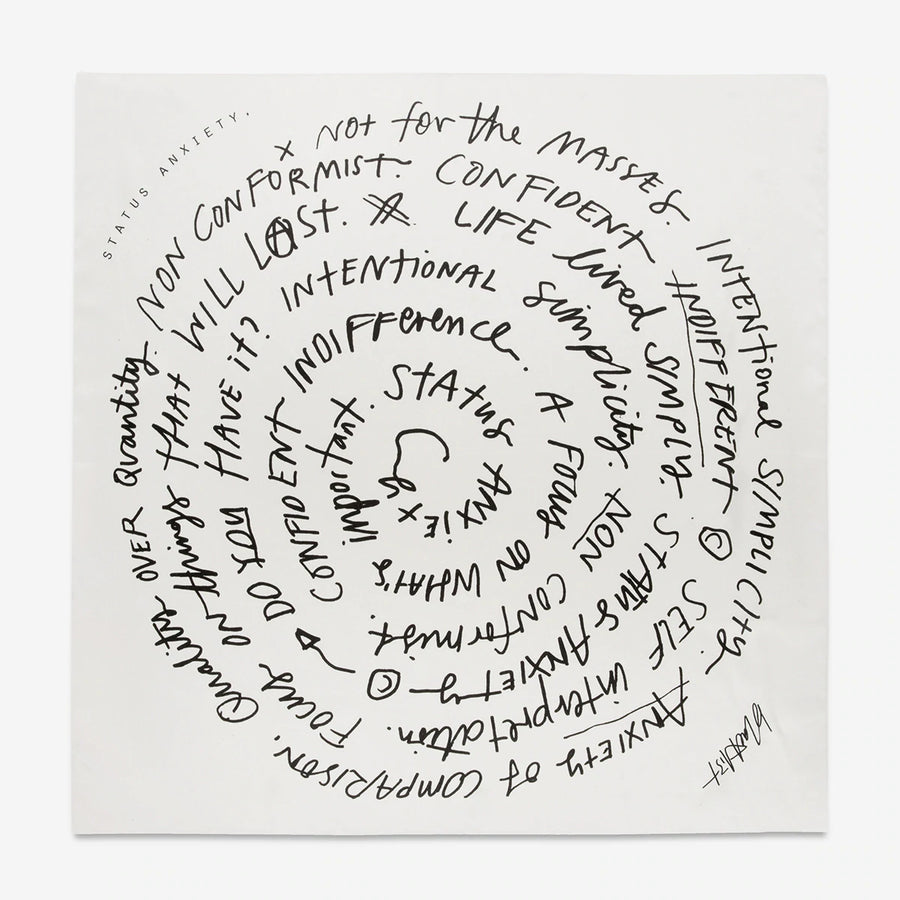 STATUS ANXIETY.
x Not for the MASSES.
INTENTIONAL SIMPLICITY.
ANXIETY OF COMPARISON.
Quality OVER Quantity.
NON CONFORMIST.
CONFIDENT INDIFFERENT ©
SELF interpretation.
Focus ON things THAT WILL LAST.
LIFE lived SIMPLY.
STATUS ANXIETY ©
DO YOU HAVE it?
INTENTIONAL simplicity.
NON conformist.
CONFIDENT INDIFFerence.
A FOCUS ON WHAT'S important.
STATUS ANXIE